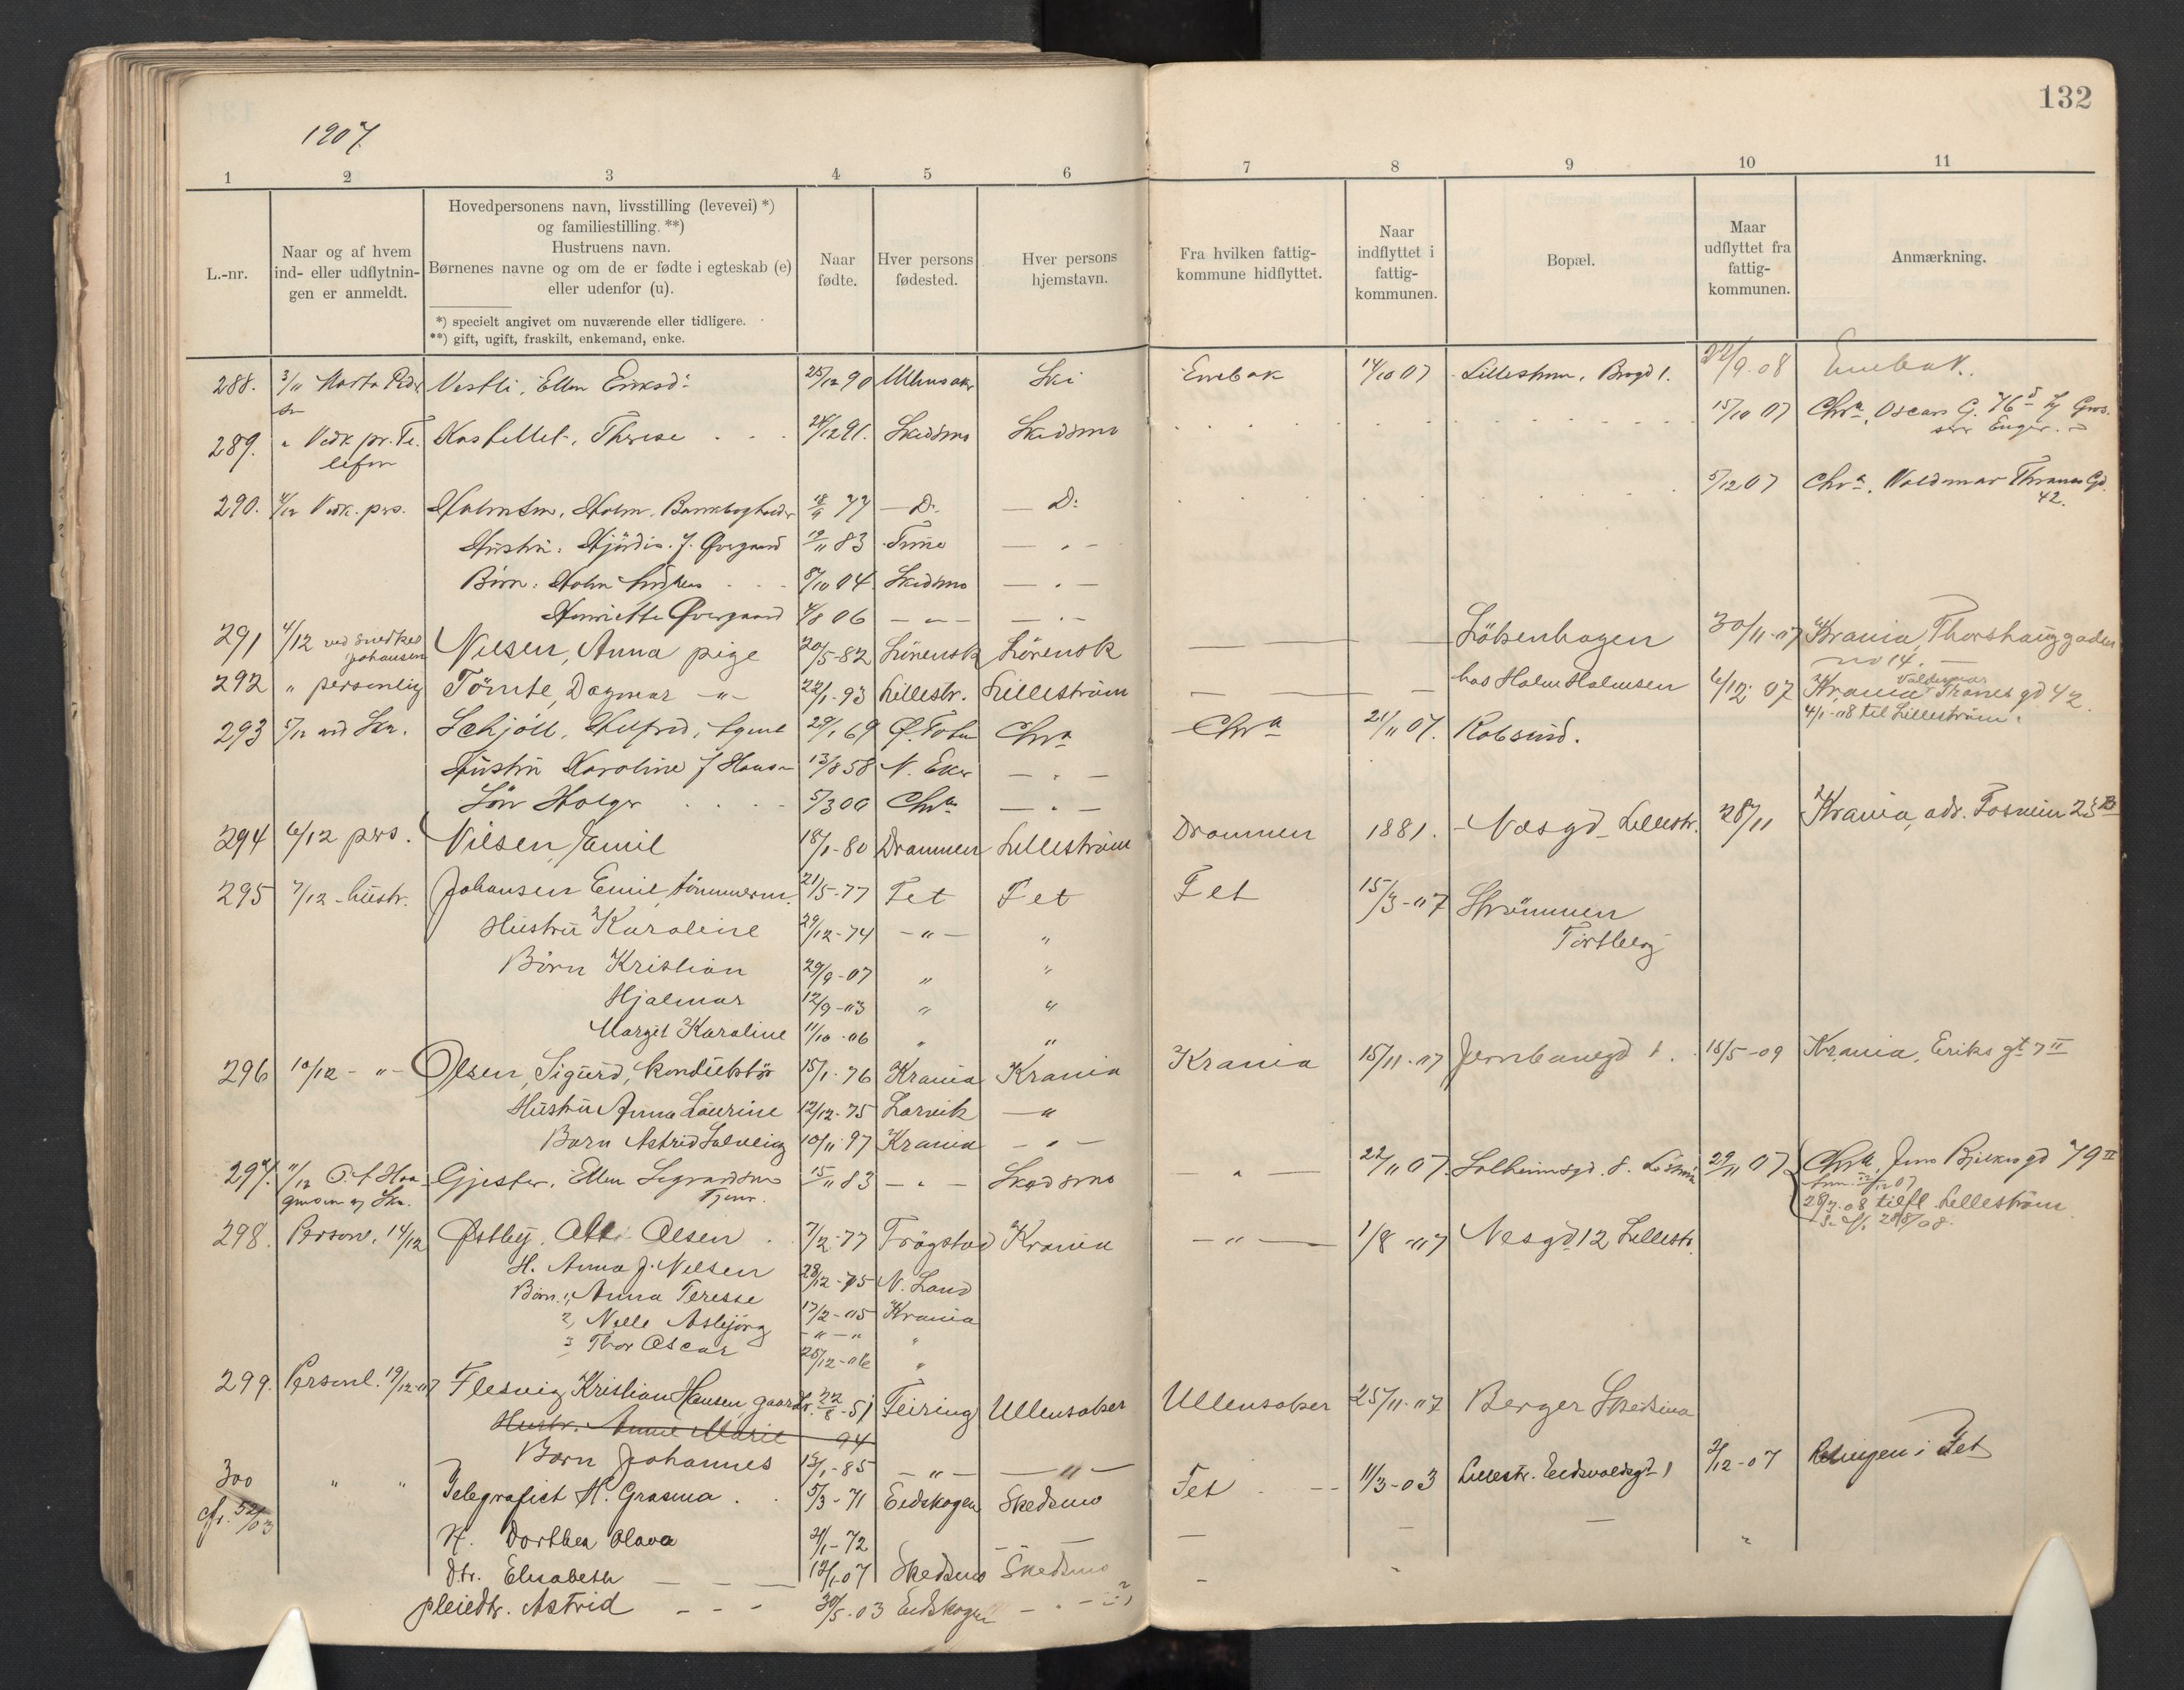 132
1907
1 2 3 4 5 6 7 8 9 10 11
L.-nr.
Naar og af hvem
ind- eller udflytnin-
gen er anmeldt.
Hovedpersonens navn, livsstilling (levevei) *)
og familiestilling. **)
Hustruens navn.
Børnenes navne og om de er fødte i egteskab (e)
eller udenfor (u).
*) specielt angivet om nuværende eller tidligere.
**) gift, ugift, fraskilt, enkemand, enke.
Naar
fødte.
Hver persons
fødested.
Hver persons
hjemstavn.
Fra hvilken fattig-
kommune hidflyttet.
Naar
indflyttet i
fattig-
kommunen.
Bopæl.
Maar
udflyttet fra
fattig-
kommunen.
Anmærkning.
288. 3/11 Marta Vestli, Ellen 25/12 90 Ski Enebak 14/10 07 Lillestrøm, Brogd 1. 9.08 Enebak.
289. " Vedk. pr. Te- Kastellet, Therese 24/12 91. Skedsmo Skedsmo 15/10 07 Chra, Oscars G. 76
lefon
290. 4/12 Vedk. prs. Holmsen, Holm, Bankbogholder 18/9 77 — D: — D: 5/12 07 Chra, Valdmar Thranes Gd.
42.
Hustru: Hjördis f. Øvergaard 19/11 83 — " —
Børn: Holm 8/10 04 Skedsmo — " —
Henriette Øvergaard 4/8 06 — " — — " —
291 4/12 ved snedker Nilsen, Anna pige 20/5-82 Lörensk Lörensk — Löbenhagen 30/11-07 Krania, Thorshauggaden
Johansen no 14. —
292 " personlig Tömte, Dagmar —"— 22/1-93 Lillestr. Lilleström — hos Holm Holmsen 6/12 07 Krania Valdemar Tranes gd 42.
4/1-08 til Lilleström.
293 5/12 ved Skr. Schjöll, Hilfred, Agent 29/1 69 Ø. Toten Chra Chra 21/11 07. Robsrud.
Hustru Karoline f Hansen 13/8 58 N. Eker — " —
Sön Holger 5/3 00 Chra — " —
294 6/12 pers. Nilsen, Emil 18/1-80 Drammen Lilleström Drammen 1881. Næsgd Lillestr. 28/11 Krania, adr. 23 B
295 7/12 - hustr. Johansen Emil, tömmerm. 21/5-77 Fet Fet Fet 15/3-07 Strömmen
Hustru Karoline 29/12-74 —"— " Tortberg
Børn Kristian 29/9-07 " "
Hjalmar 12/9-03 " "
Margit Karoline 11/10-06 " "
296 10/12 - " - Olsen, Sigurd, konduktör 15/1-76 Krania Krania Krania 15/11-07 Jernbanegd 1. 15/5-09 Krania, Eriks gt 7 II
Hustru Anna Laurine 12/12-75 Larvik —"
Barn Astrid Solveig 10/11-97 Krania — " —
297. 11/12 O. A. Haa- Gjester, Ellen Sigvardsen 15/11 83 — " — Skedsmo — " — 22/11 07. Solheimsgd. 8. 29/11 07 Chra, Jens Bjelkes gd 79 II
Tjener. 12/12 07
28/3.08 tilfl. Lilleström
298. Person. 14/12 Østby, Olsen 7/2-77 Trögstad Krania —"— 1/8-07 Nesgd 12 Lillestr.
H. Anna f. Nilsen 28/12-75 N. Land
Børn: 1, Anna Teresse 17/2-05 Krania
2, Nelle Asbjörg —"—" "
3 Thor Oscar 25/12-06 "
299. Personl. 19/12-07 Flesvig Kristian Hansen, gaardbr. 22/8-51 Feiring Ullensaker Ullensaker 25/11-07 Berger Skedsmo
Hustr. Anne Marie 94
Barn Johannes 13/1-85 —"— —"—
300 " " Telegrafist H. Grasmo 5/3-71 Eidskogen Skedsmo Fet 11/3-03 Lillestr. Eidsvoldsgt 1 2/12-07 i Fet
cfr. 52/03
H. Dorthea Olava 21/1-72 — — — — "
Dtr. Elisabeth 12/1.07 Skedsmo Skedsmo - "
pleiedtr. Astrid 30/5.03 Eidskogen — " —